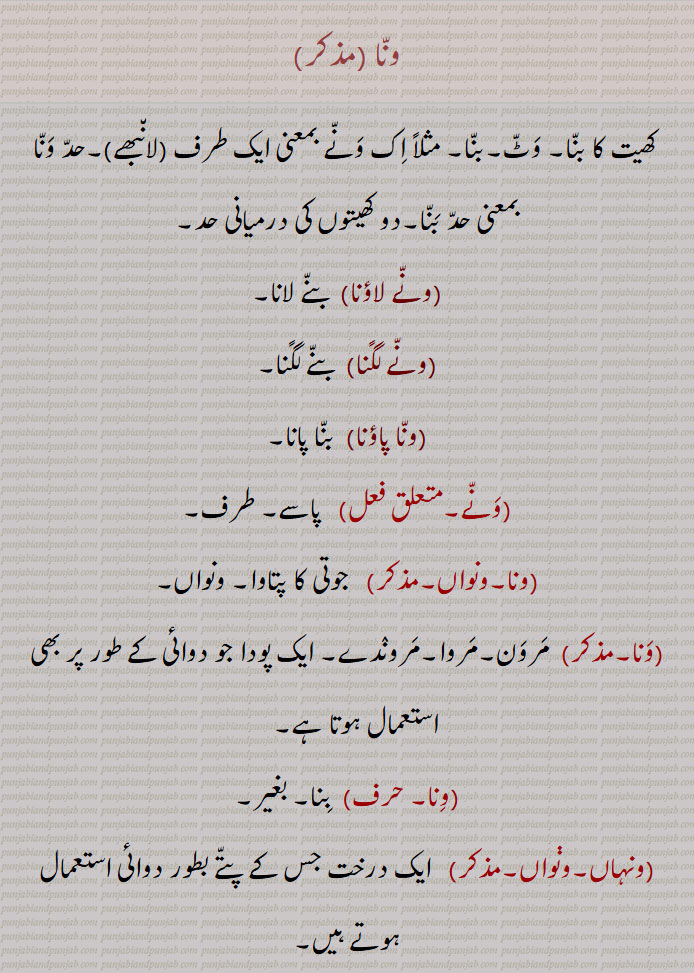 ونّا (مذکر)
کھیت کا بنّا۔ وَٹّ۔بنّا۔ مثلاً اِک وَنّے بمعنی ایک طرف (لانّبھے)۔حدّ وَنّا
بمعنی حدّ بَنّا۔دو کھیتوں کی درمیانی حد۔
(ونّے لاؤنا) بنّے لانا۔
(ونّے لگݨا) بنّے لگنا۔
(ونّا پاؤنا) بنّا پانا۔
(وَنّے۔متعلق فعل) پاسے۔ طرف۔
(ونا۔ونواں۔مذکر) جوتی کا پتاوا۔ ونواں۔
(وَنا۔مذکر) مَروَن۔مَروا۔مَرونْدے۔ ایک پودا جو دوائی کے طور پر بھی
استعمال ہوتا ہے۔
(وِنا۔ حرف) بِنا۔ بغیر۔
(ونہاں۔ونْواں۔مذکر) ایک درخت جس کے پتّے بطور دوائی استعمال
ہوتے ہیں۔